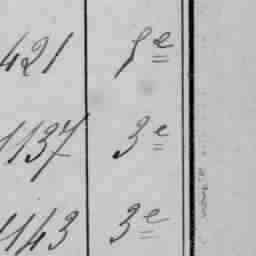 421 8e
1137 3e
1143 3e